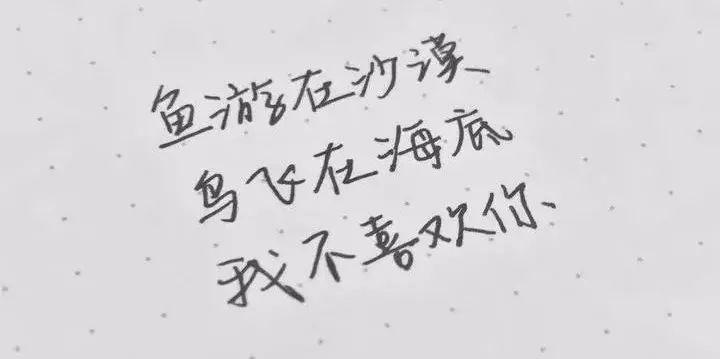 鱼游在沙漠
鸟飞在海底
我不喜欢你